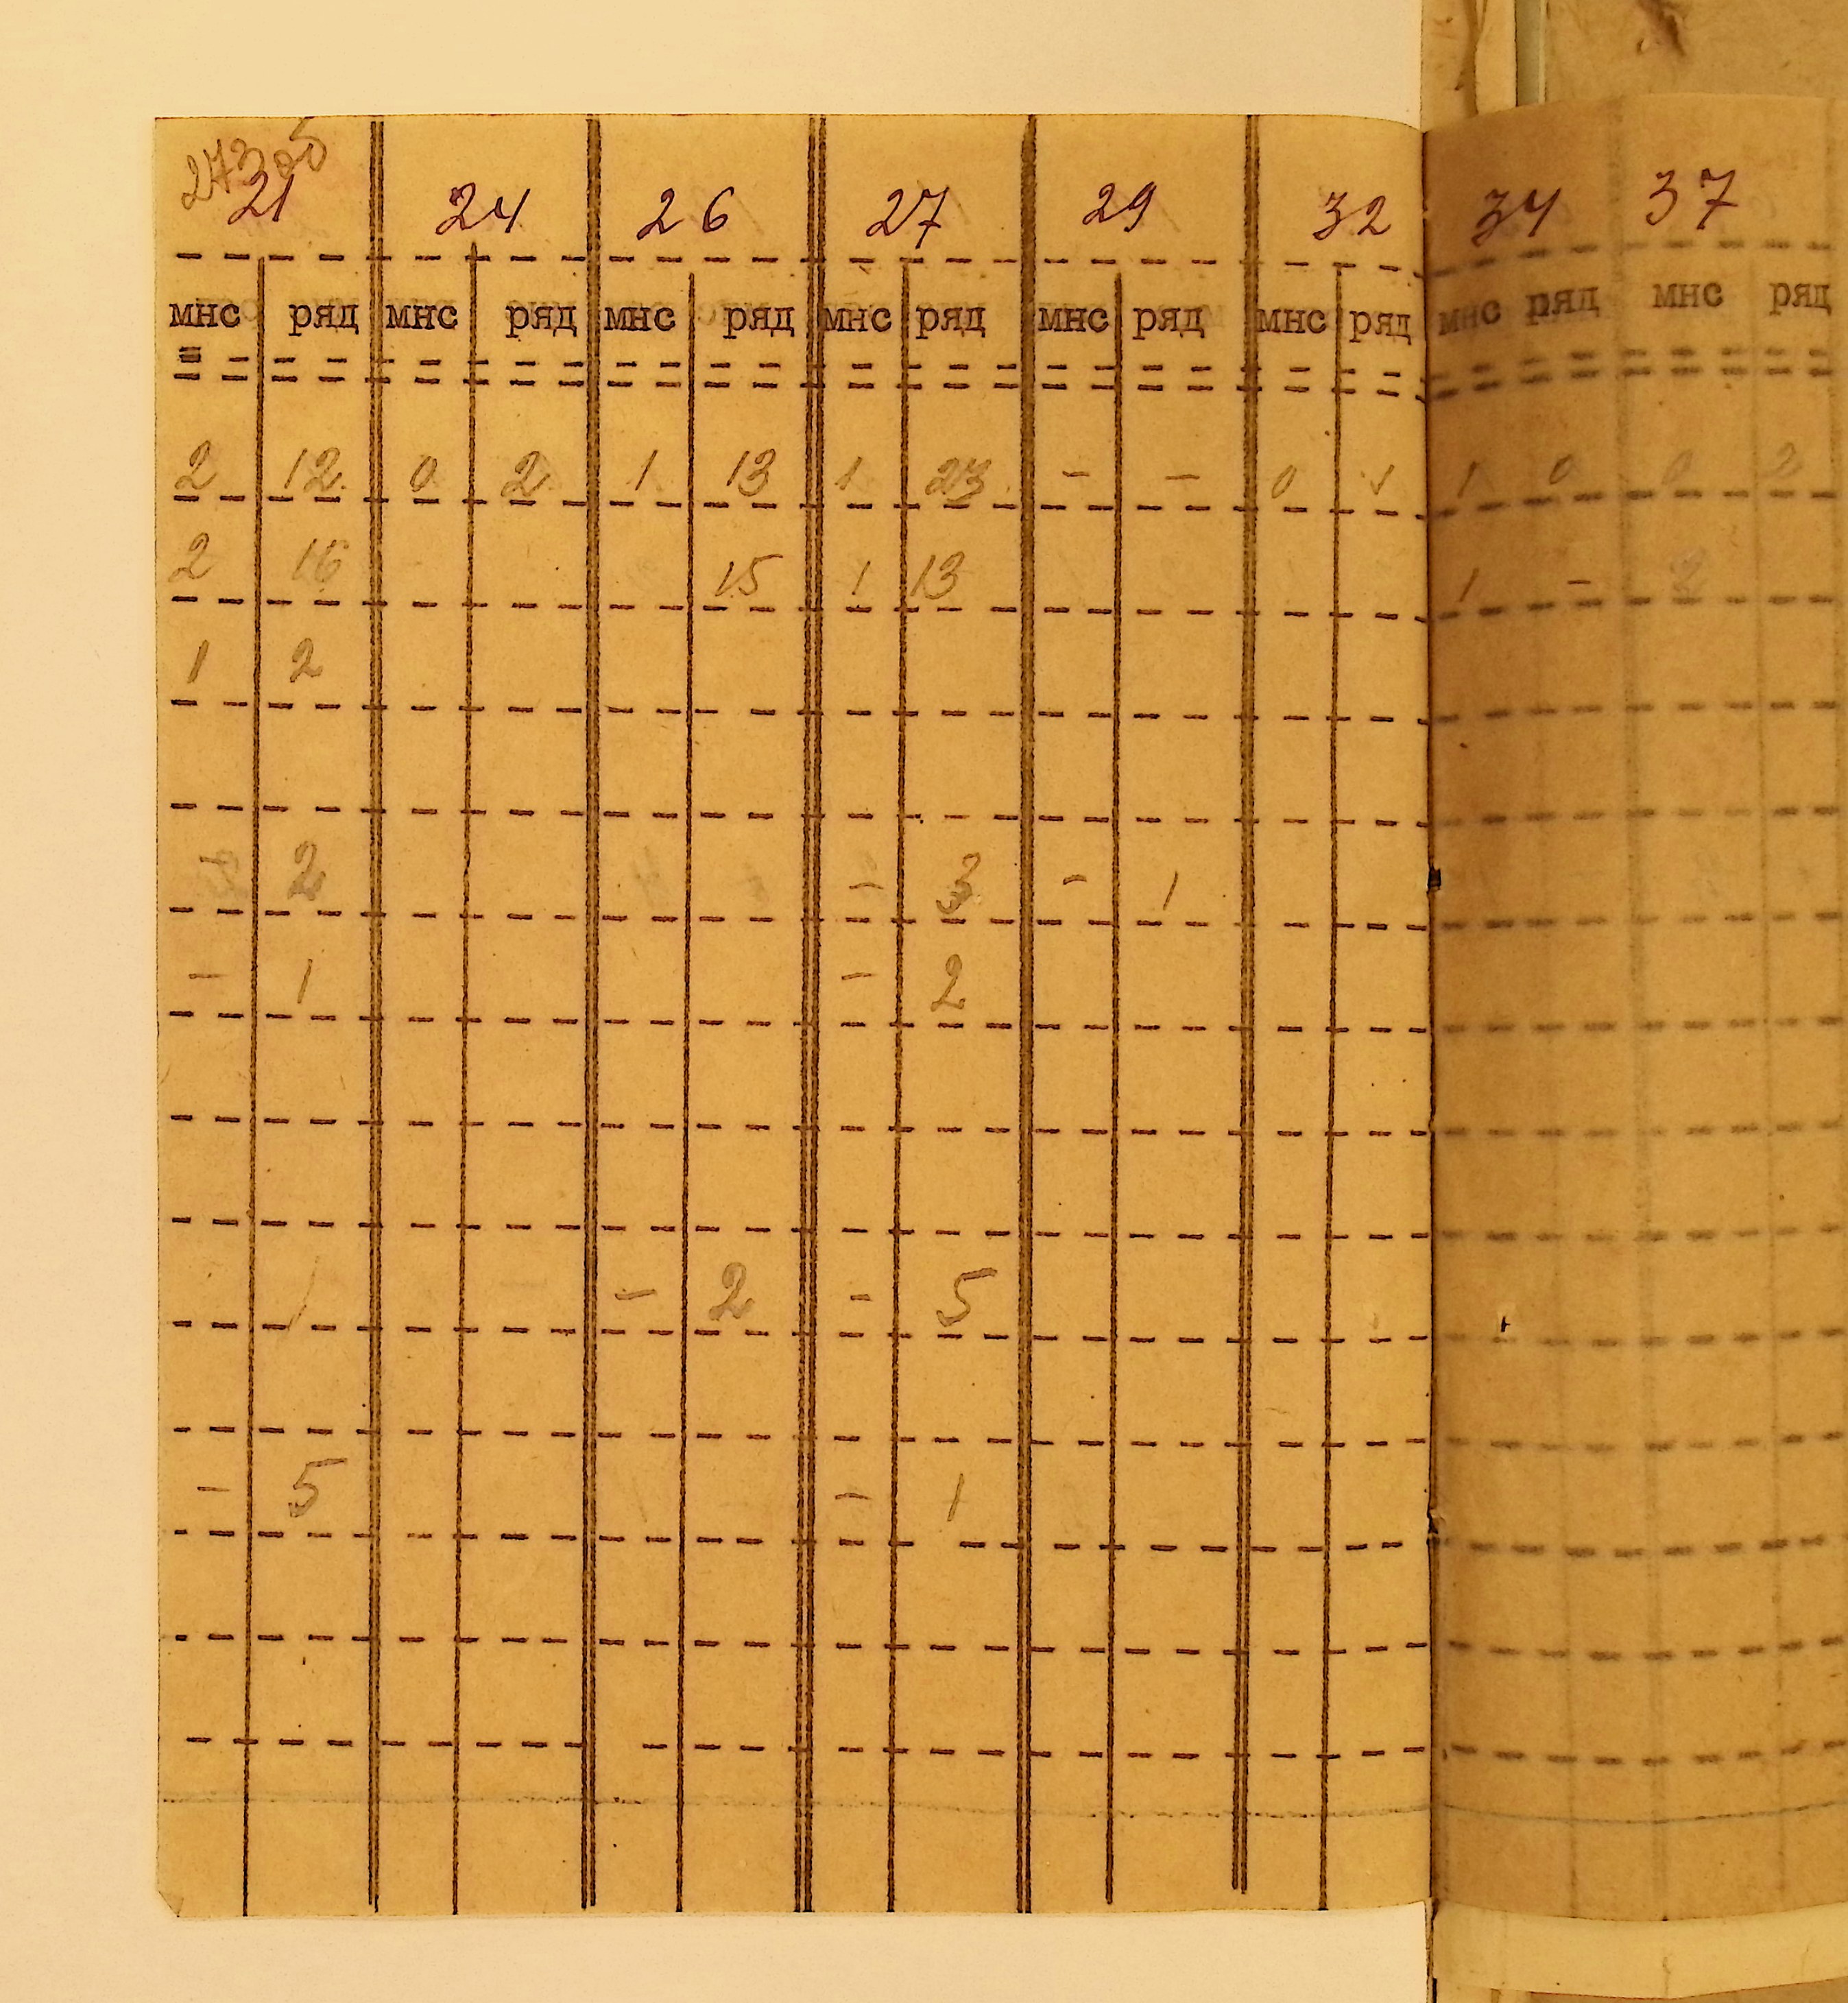 21 24 26 27 29 32 34 37
мнс ряд мнс ряд мнс ряд мнс ряд мнс ряд мнс ряд мнс ряд мнс ряд
2 12 0 2 1 13 1 23 - - 0 1 1 0 0 2
2 16 15 1 13 1 - 2
1 2
2 - 3 - 1
- 1 - 2
1 - 2 - 5
- 5 - 1